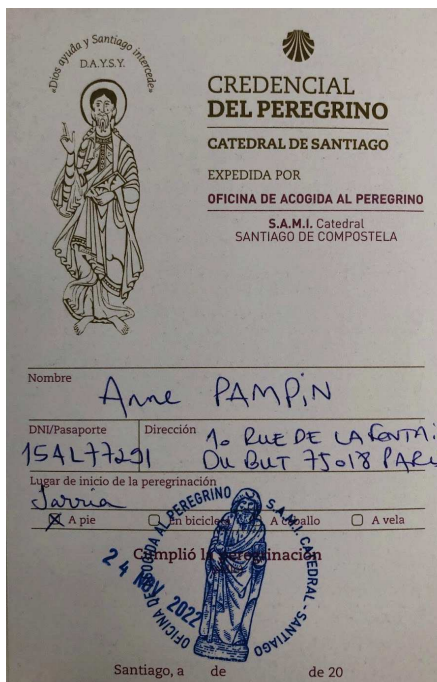 «Dios ayuda y Santiago intercede»
D.A.Y.S.Y.
CREDENCIAL
DEL PEREGRINO
CATEDRAL DE SANTIAGO
EXPEDIDA POR
OFICINA DE ACOGIDA AL PEREGRINO
S.A.M.I. Catedral
SANTIAGO DE COMPOSTELA
Nombre
Anne PAMPIN
DNI/Pasaporte
15AL77291
Dirección
10 RUE DE LA FONTAI
DU BUT 75018 PARI
Lugar de inicio de la peregrinación
Sarria
A pie
En bicicleta
A caballo
A vela
Cumplió la peregrinación
OFICINA DE ACOGIDA AL PEREGRINO
S.A.M.I. CATEDRAL - SANTIAGO
24 NOV 2022
Santiago, a de de 20